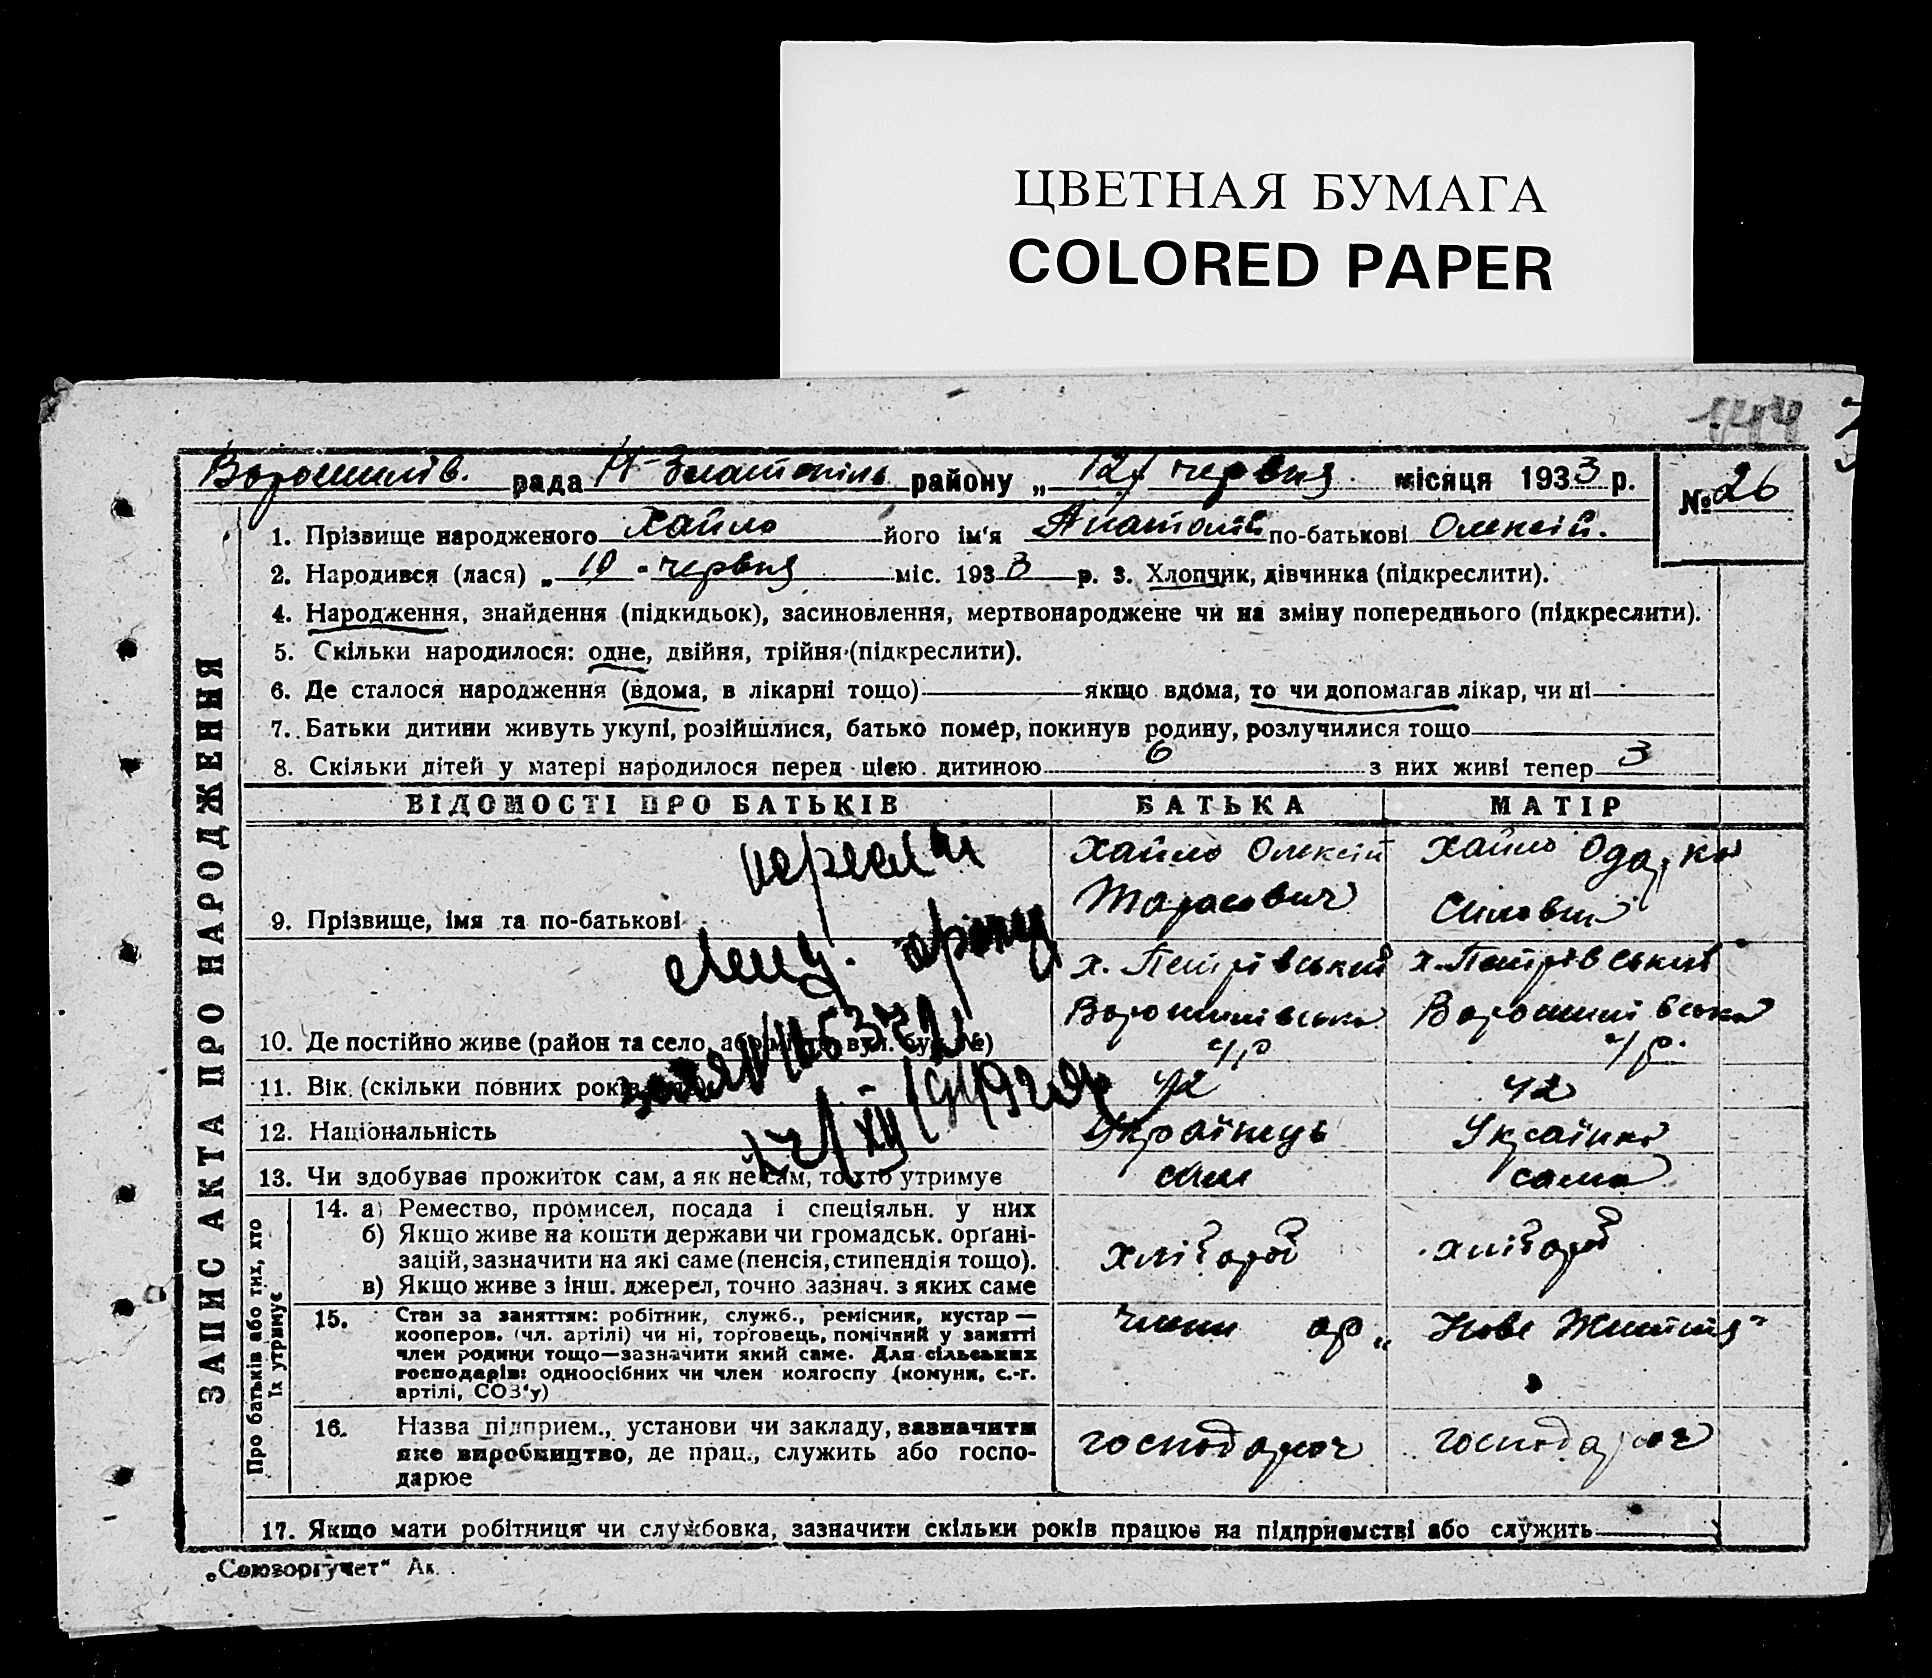 ЦВЕТНАЯ БУМАГА
COLORED PAPER
Ворошилів. рада Н-Златопіль району „ 12 " червня місяця 1933 р. № 26
1. Прізвище народженого Хайло його ім'я Анатолій по-батькові Олексій.
2. Народився (лася) „ 10 " червня міс. 1933 р. 3. Хлопчик, дівчинка (підкреслити).
4. Народження, знайдення (підкидьок), засиновлення, мертвонароджене чи на зміну попереднього (підкреслити).
5. Скільки народилося: одне, двійня, трійня (підкреслити).
6. Де сталося народження (вдома, в лікарні тощо) якщо вдома, то чи допомагав лікар, чи ні
7. Батьки дитини живуть укупі, розійшлися, батько помер, покинув родину, розлучилися тощо
8. Скільки дітей у матері народилося перед цією дитиною 6 з них живі тепер 3
ЗАПИС АКТА ПРО НАРОДЖЕННЯ
ВІДОМОСТІ ПРО БАТЬКІВ БАТЬКА МАТІР
Хайло Олексій Хайло Одарка
9. Прізвище, імя та по-батькові Тарасович
х. Петрівський х. Петрівський
Ворошилівська Ворошилівська
10. Де постійно живе (район та село, с/р с/р.
11. Вік (скільки повних років 42 42
12. Національність Українець Українка
13. Чи здобуває прожиток сам, а як не сам, то хто утримує сам сама
Про батьків або тих, хто
їх утримує
14. а) Ремество, промисел, посада і спеціяльн. у них
б) Якщо живе на кошти держави чи громадськ. орґані-
зацій, зазначити на які саме (пенсія, стипендія тощо).
в) Якщо живе з інш. джерел, точно зазнач. з яких саме
хлібороб хлібороб
15. Стан за заняттям: робітник, служб., ремісник, кустар —
кооперов. (чл. артілі) чи ні, торговець, помічний у занятті
член родини тощо—зазначити який саме. Для сільських
господарів: одноосібних чи член колгоспу (комуни, с.-г.
артілі, СОЗ'у)
члени ар „Нове Життя"
16. Назва підприєм., установи чи закладу, зазначити
яке виробництво, де прац., служить або госпо-
дарює
17. Якщо мати робітниця чи службовка, зазначити скільки років працює на підприємстві або служить
„Союзоргучет" Ак.